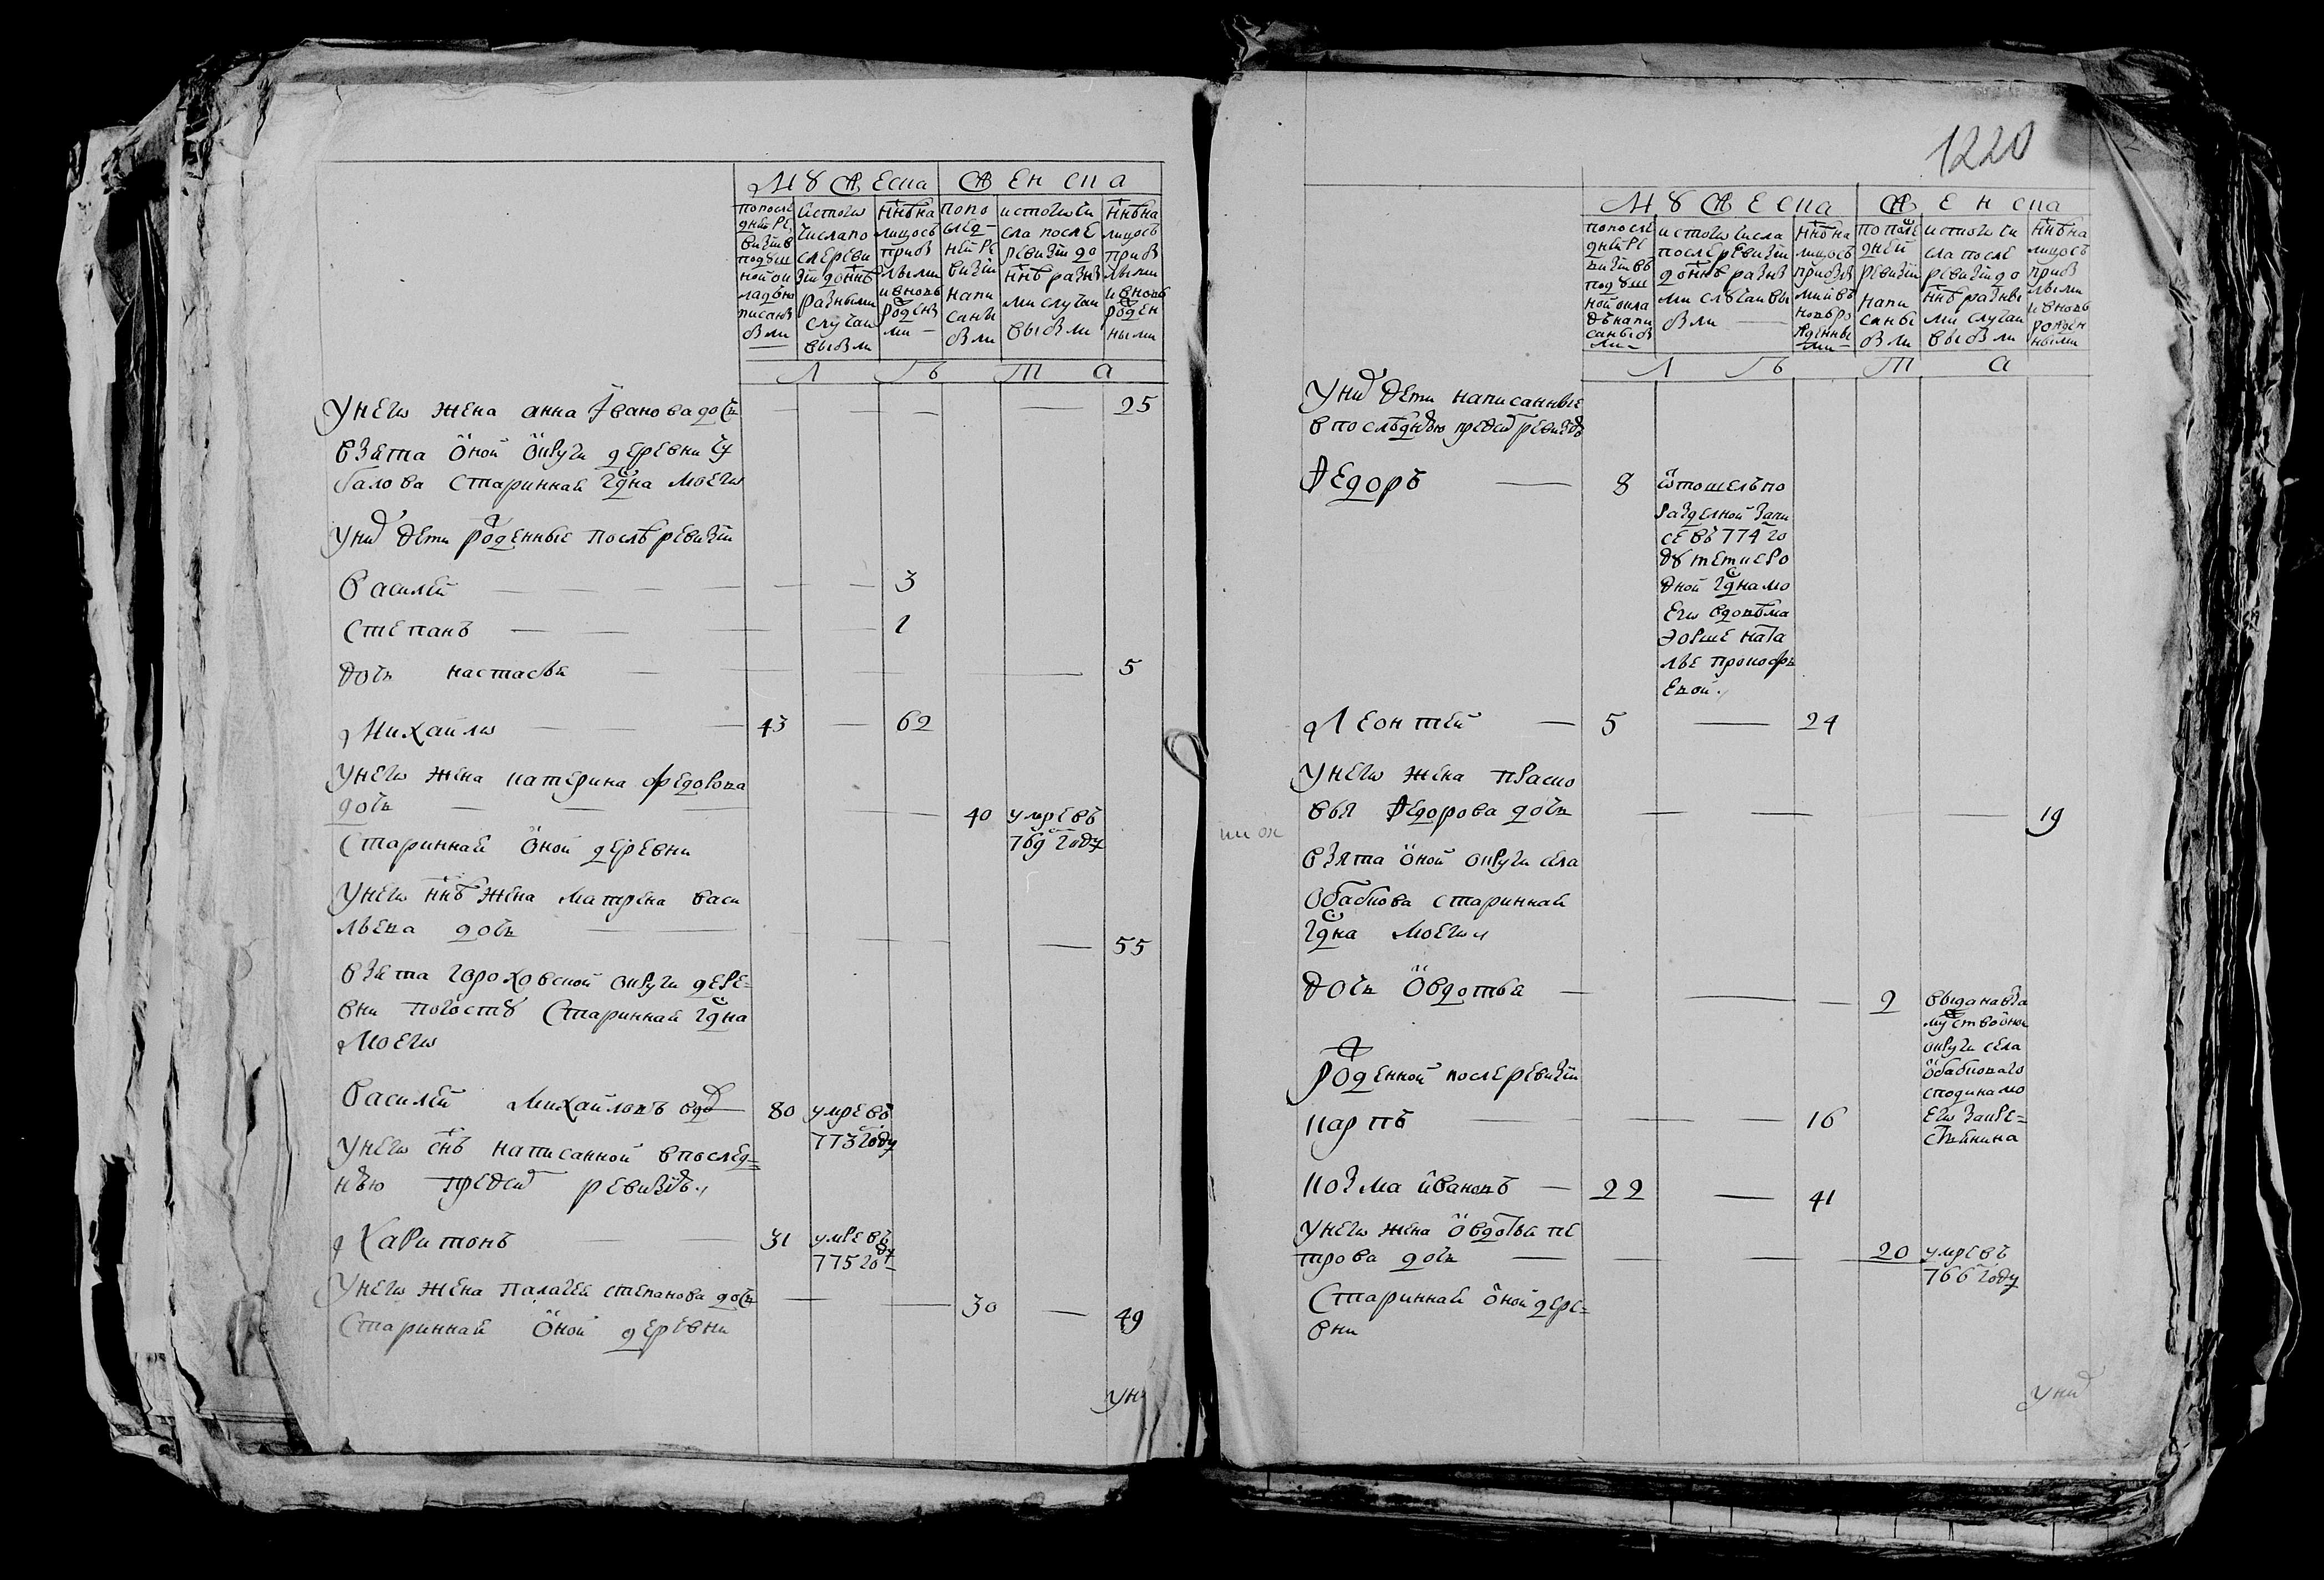 Мужеска Женска
попосле
дней ре
визи в
подуш
ной ок
лад на
писан
были
ис того
числа по
сле реви
зи до ннѣ
разными
случаи
выбыли
ннѣ на
лицо съ
прибы
лыми
и вновь
рожден
ми
попо
след
ней ре
визи
напи
саны
были
ис того чи
сла после
ревизи до
ннѣ разны
ми случаи
выбыли
ннѣ на
лицо съ
прибы
лыми
и вновь
рожден
ными
Л ѣ т а
У него жена анна Иванова дочь — — — 25
взята оной округи деревни
старинная гдна моего
У них дети рожденные послѣ ревизи
Василей — — — 3
Степанъ — — — 1
дочь настасья — — — 5
Михайло — — 43 — 62
У него жена катерина федорова
дочь — — — 40 умре въ
старинная оной деревни 769 году
У него ннѣ жена матрена васи
льева дочь — — — 55
взята гороховской округи дере=
вни погосту старинная гдна
моего
Василей Михайловъ вдо 80 умре въ
773 году
У него снъ написанной в послед=
нѣю пред сим ревизѣю
Харитонъ — — 31 умре въ
775 году
У него жена палагея степанова дочь — — 30 — 49
Старинная оной деревни
Ун
1220
Мужеска Женска
попосле
дней ре
визи въ
подуш
ной окла
дъ напи
саны бы
ли
ис того числа
после ревизи
до ннѣ разны
ми случаи вы
были —
ннѣ на
лицо съ
прибылы
ми и въ
новь ро
жденны
ми
по после
дней
ревизи
напи
саны
были
ис того чи
сла после
ревизи до
ннѣ разны
ми случаи
выбыли
ннѣ на
лицо съ
прибы
лыми
и вновь
рожден
ными
Л ѣ т а
Уних дети написанные
в послѣднѣю пред сим ревизѣю
Федоръ — 8 отошелъ по
раздельной запи
се въ 774 го
ду тетке ро
дной гдна мо
его вдовѣ ма
эорше ната
лье прокофь
евой
Леонтей — 5 — 24
У него жена праско
вья Федорова дочь — — — 19
взята оной округи села
Обабкова старинная
гдна моего
дочь Овдотья — — — 2 выдана в за
мужство оной
округи села
обабкова го
сподина мо
его за кре=
стьянина
рожденной после ревизи
карпъ — — — 16
козма ивановъ — 22 — 41
У него жена овдотья пе
трова дочь — — — 20 умре въ
766 году
Старинная оной дере=
вни
Уних